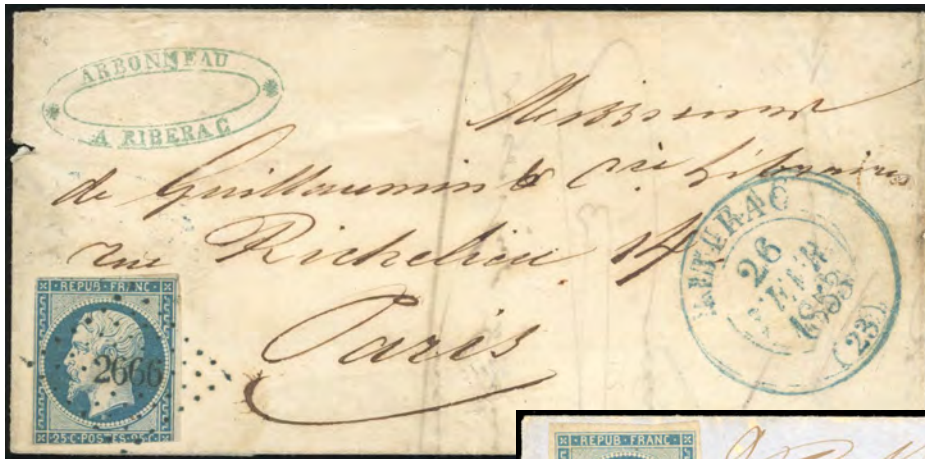 ARBONNEAU
A RIBERAC
Messieurs
de Guillaumin & Cie Libraires
rue Richelieu 14
Paris
RIBERAC
26
FEVR
1853
(23)
REPUB·FRANC·
2666
25·C·POSTES·25·C
REPUB·FRANC·